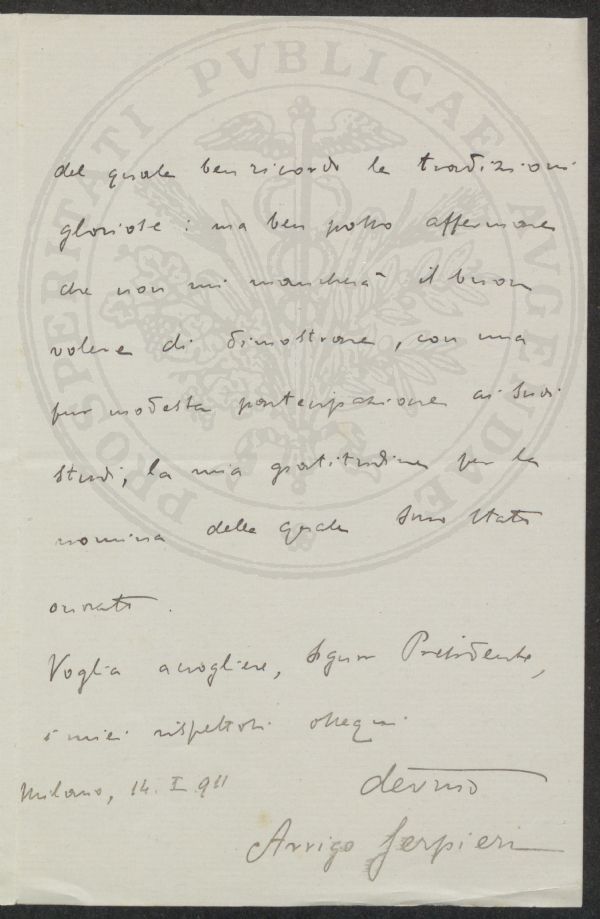 PROSPERITATI PVBLICAE AVGENDAE
del quale ben ricordo le tradizioni
gloriose: ma ben posso affermare
che non mi mancherà il buon
volere di dimostrare, con una
pur modesta partecipazione ai suoi
studi, la mia gratitudine per la
nomina della quale sono stato
onorato.
Voglia accogliere, Signor Presidente,
i miei rispettosi ossequi.
Milano, 14. I 911
devmo
Arrigo Serpieri